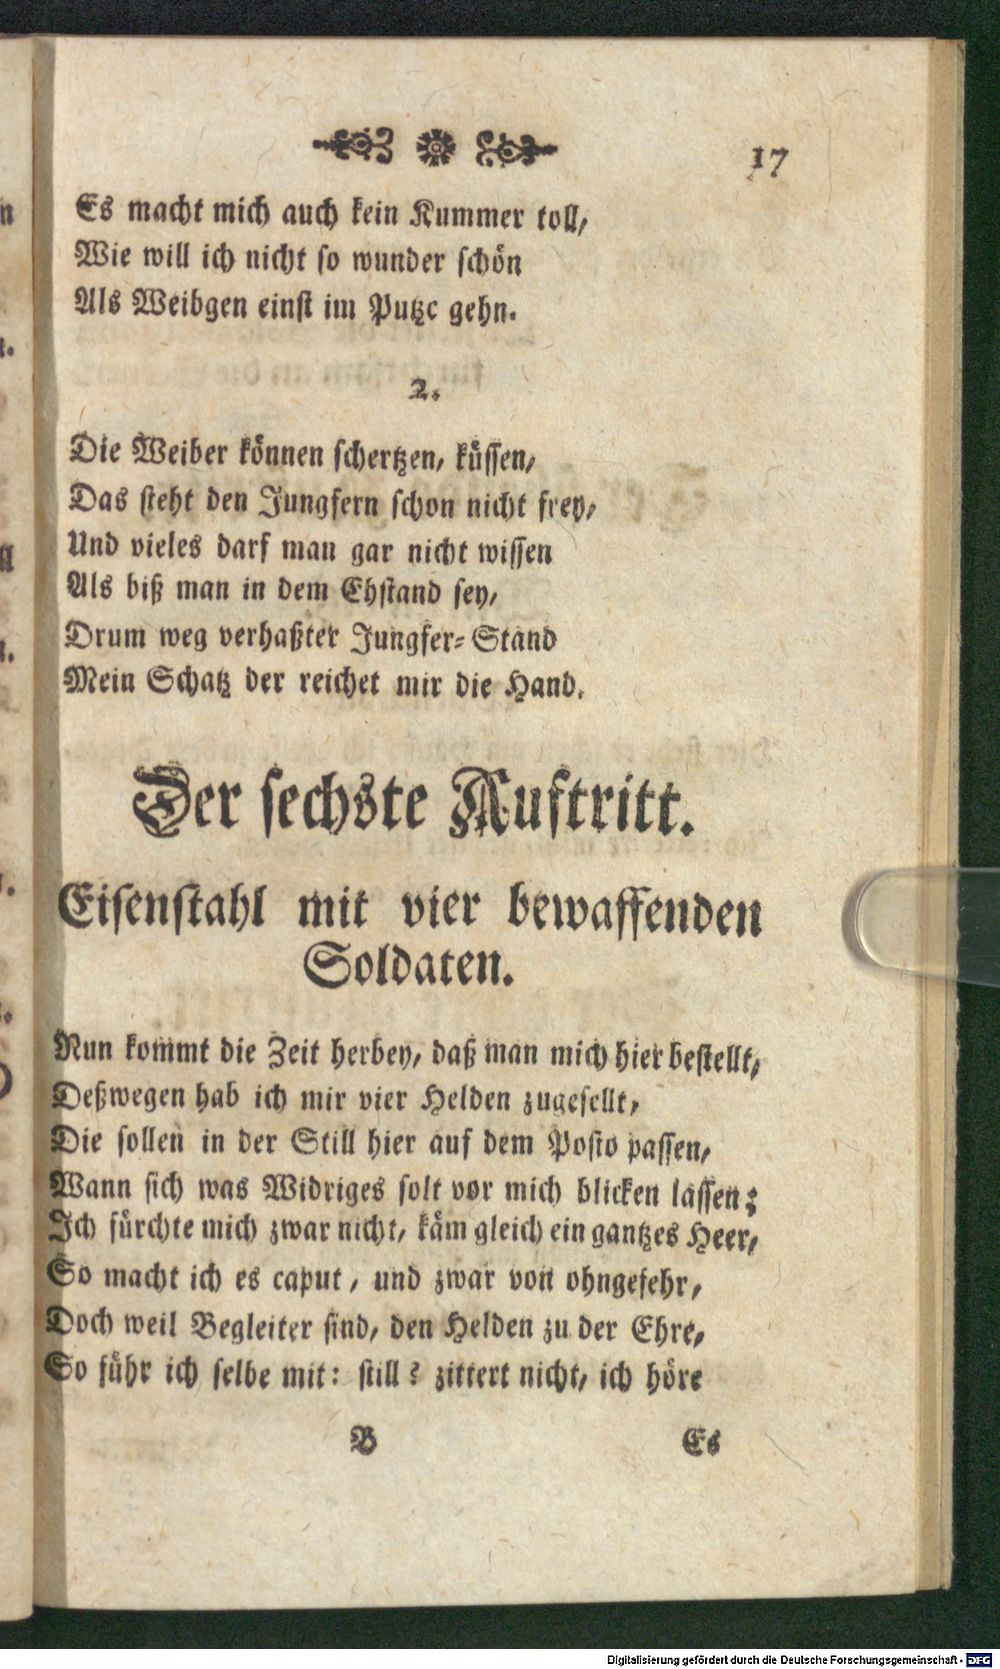 17
Es macht mich auch kein Kummer toll,
Wie will ich nicht so wunder schön
Als Weibgen einst im Putze gehn.
2.
Die Weiber können schertzen, küssen,
Das steht den Jungfern schon nicht frey,
Und vieles darf man gar nicht wissen
Als biß man in dem Ehstand sey,
Drum weg verhaßter Jungfer-Stand
Mein Schatz der reichet mir die Hand.
Der sechste Auftritt.
Eisenstahl mit vier bewaffenden
Soldaten.
Nun kommt die Zeit herbey, daß man mich hier bestellt,
Deßwegen hab ich mir vier Helden zugesellt,
Die sollen in der Still hier auf dem Posto passen,
Wann sich was Widriges solt vor mich blicken lassen;
Ich fürchte mich zwar nicht, käm gleich ein gantzes Heer,
So macht ich es caput, und zwar von ohngefehr,
Doch weil Begleiter sind, den Helden zu der Ehre,
So führ ich selbe mit: still? zittert nicht, ich höre
B Es
Digitalisierung gefördert durch die Deutsche Forschungsgemeinschaft - DFG